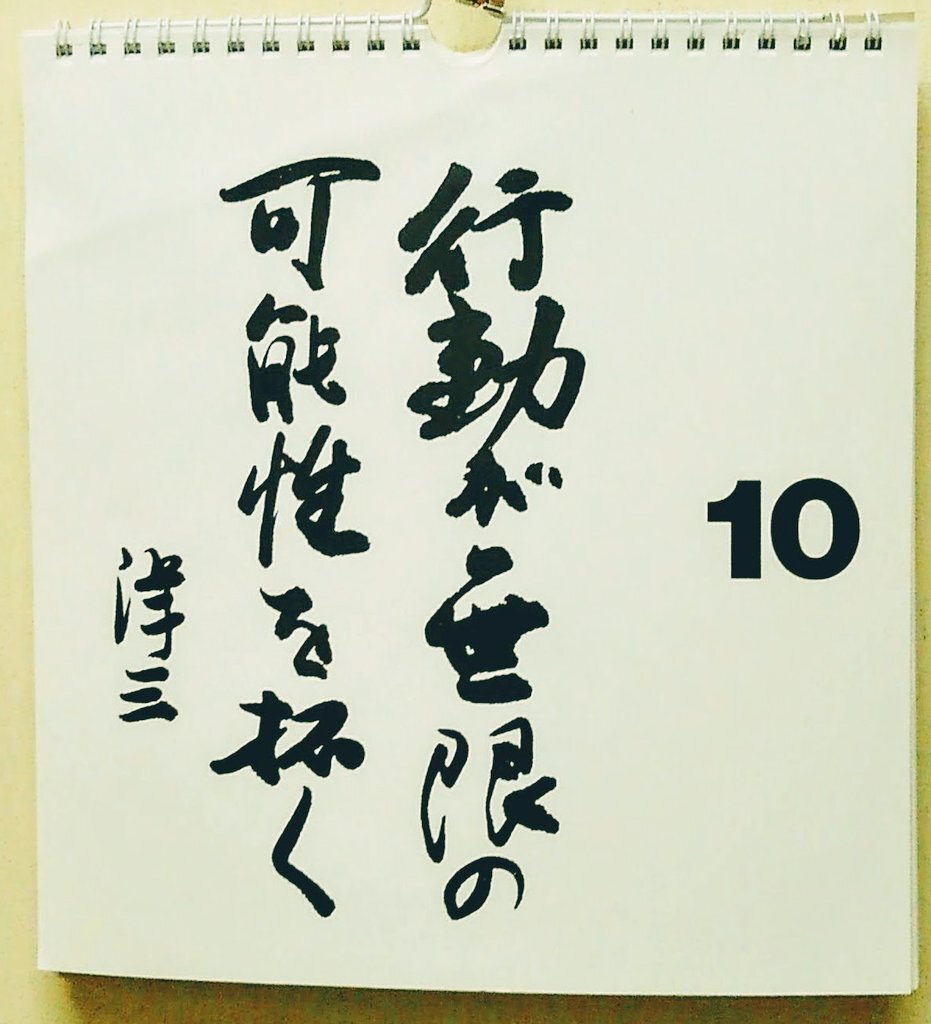 10
行動が無限の
可能性を拓く
洋三